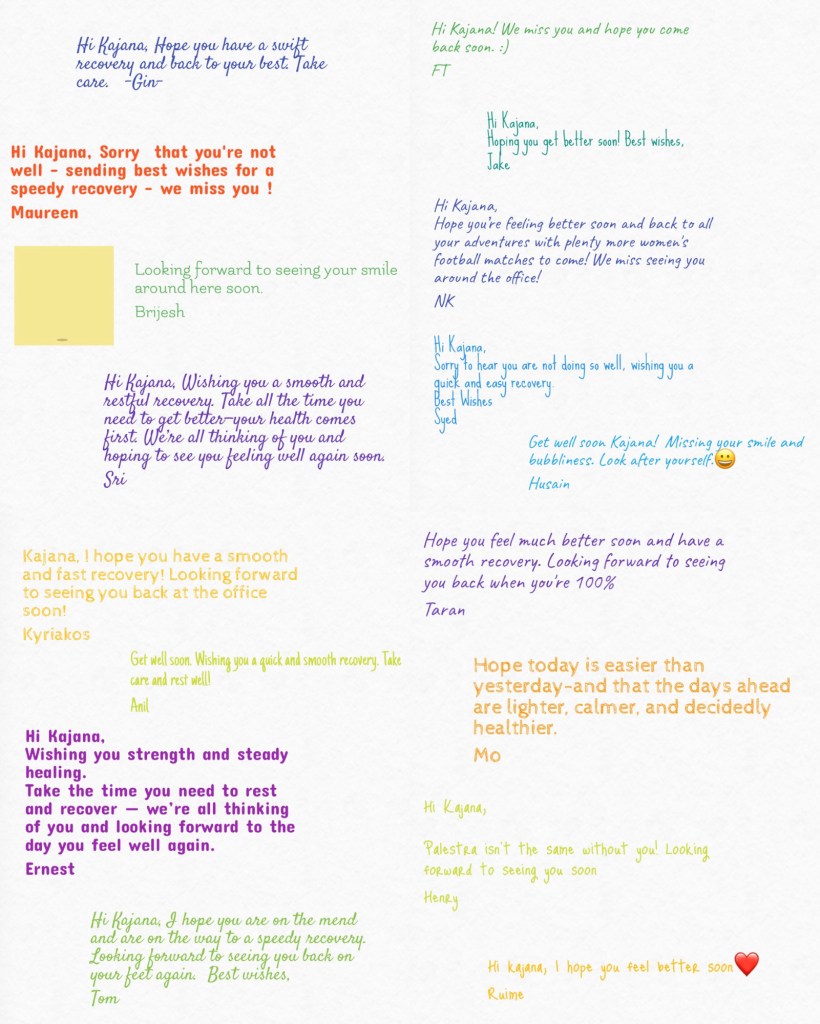 Hi Kajana, Hope you have a swift
recovery and back to your best. Take
care. -Gin-
Hi Kajana, Sorry that you're not
well - sending best wishes for a
speedy recovery - we miss you !
Maureen
Looking forward to seeing your smile
around here soon.
Brijesh
Hi Kajana, Wishing you a smooth and
restful recovery. Take all the time you
need to get better—your health comes
first. We're all thinking of you and
hoping to see you feeling well again soon.
Sri
Hi Kajana! We miss you and hope you come
back soon. :)
FT
Hi Kajana,
Hoping you get better soon! Best wishes,
Jake
Hi Kajana,
Hope you're feeling better soon and back to all
your adventures with plenty more women's
football matches to come! We miss seeing you
around the office!
NK
Hi Kajana,
Sorry to hear you are not doing so well, wishing you a
quick and easy recovery.
Best Wishes
Syed
Get well soon Kajana! Missing your smile and
bubbliness. Look after yourself.😀
Husain
Kajana, I hope you have a smooth
and fast recovery! Looking forward
to seeing you back at the office
soon!
Kyriakos
Get well soon. Wishing you a quick and smooth recovery. Take
care and rest well!
Anil
Hi Kajana,
Wishing you strength and steady
healing.
Take the time you need to rest
and recover — we're all thinking
of you and looking forward to the
day you feel well again.
Ernest
Hi Kajana, I hope you are on the mend
and are on the way to a speedy recovery.
Looking forward to seeing you back on
your feet again. Best wishes,
Tom
Hope you feel much better soon and have a
smooth recovery. Looking forward to seeing
you back when you're 100%
Taran
Hope today is easier than
yesterday—and that the days ahead
are lighter, calmer, and decidedly
healthier.
Mo
Hi Kajana,
Palestra isn't the same without you! Looking
forward to seeing you soon
Henry
Hi kajana, I hope you feel better soon❤️
Ruime